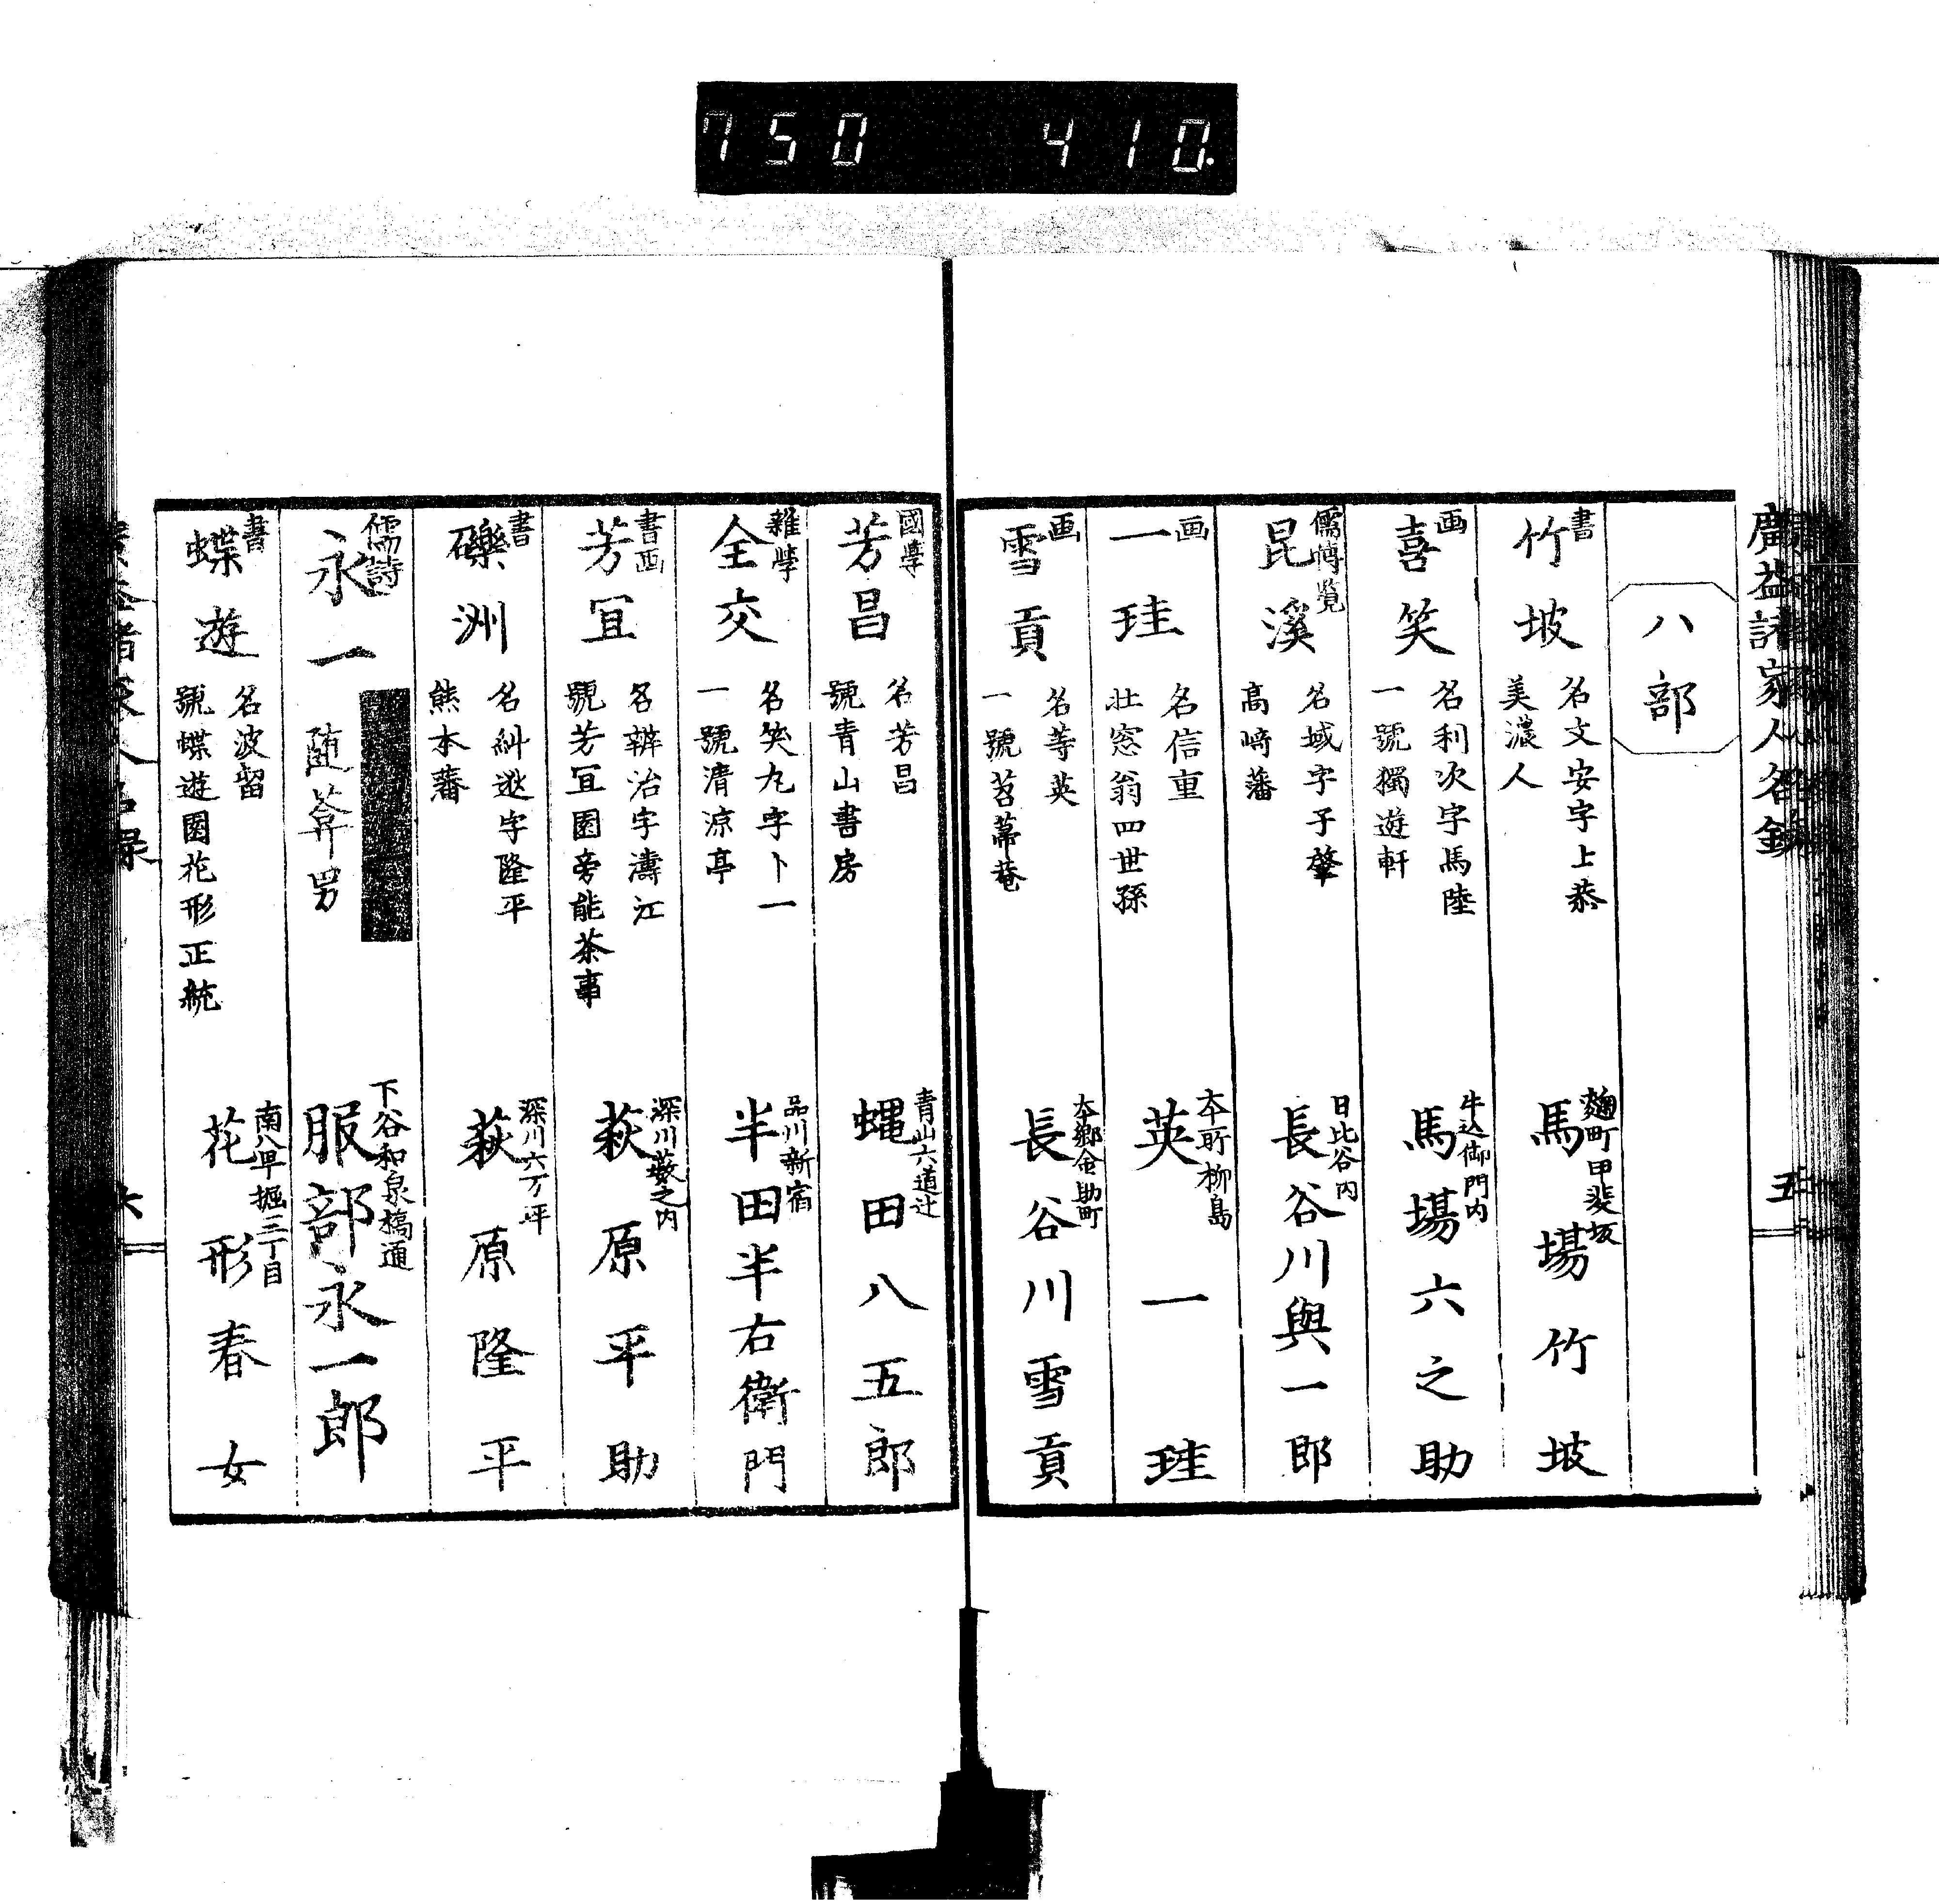 750 410.
廣益諸家人名録
五
八部
書
竹坡
名文安字上恭
美濃人
麹町甲斐坂
馬場竹坡
画
喜笑
名利次字馬陸
一號獨遊軒
牛込御門内
馬場六之助
儒博覧
昆溪
名域字子肇
高﨑藩
日比谷内
長谷川與一郎
画
一珪
名信重
壮窓翁四世孫
本所柳島
英一珪
画
雪貢
名等英
一號苕蒂菴
本郷金助町
長谷川雪貢
國學
芳昌
名芳昌
號青山書房
青山六道辻
蝿田八五郎
雜學
全交
名笑九字卜一
一號清涼亭
品川新宿
半田半右衛門
書画
芳冝
名辨治字濤江
號芳冝園旁能茶事
深川藪之内
萩原平助
書
礫洲
名糾逖字隆平
熊本藩
深川六万坪
萩原隆平
儒詩
永一
随葊男
下谷和泉橋通
服部永一郎
書
蝶遊
名波留
號蝶遊園花形正統
南八早掘三丁目
花形春女
六